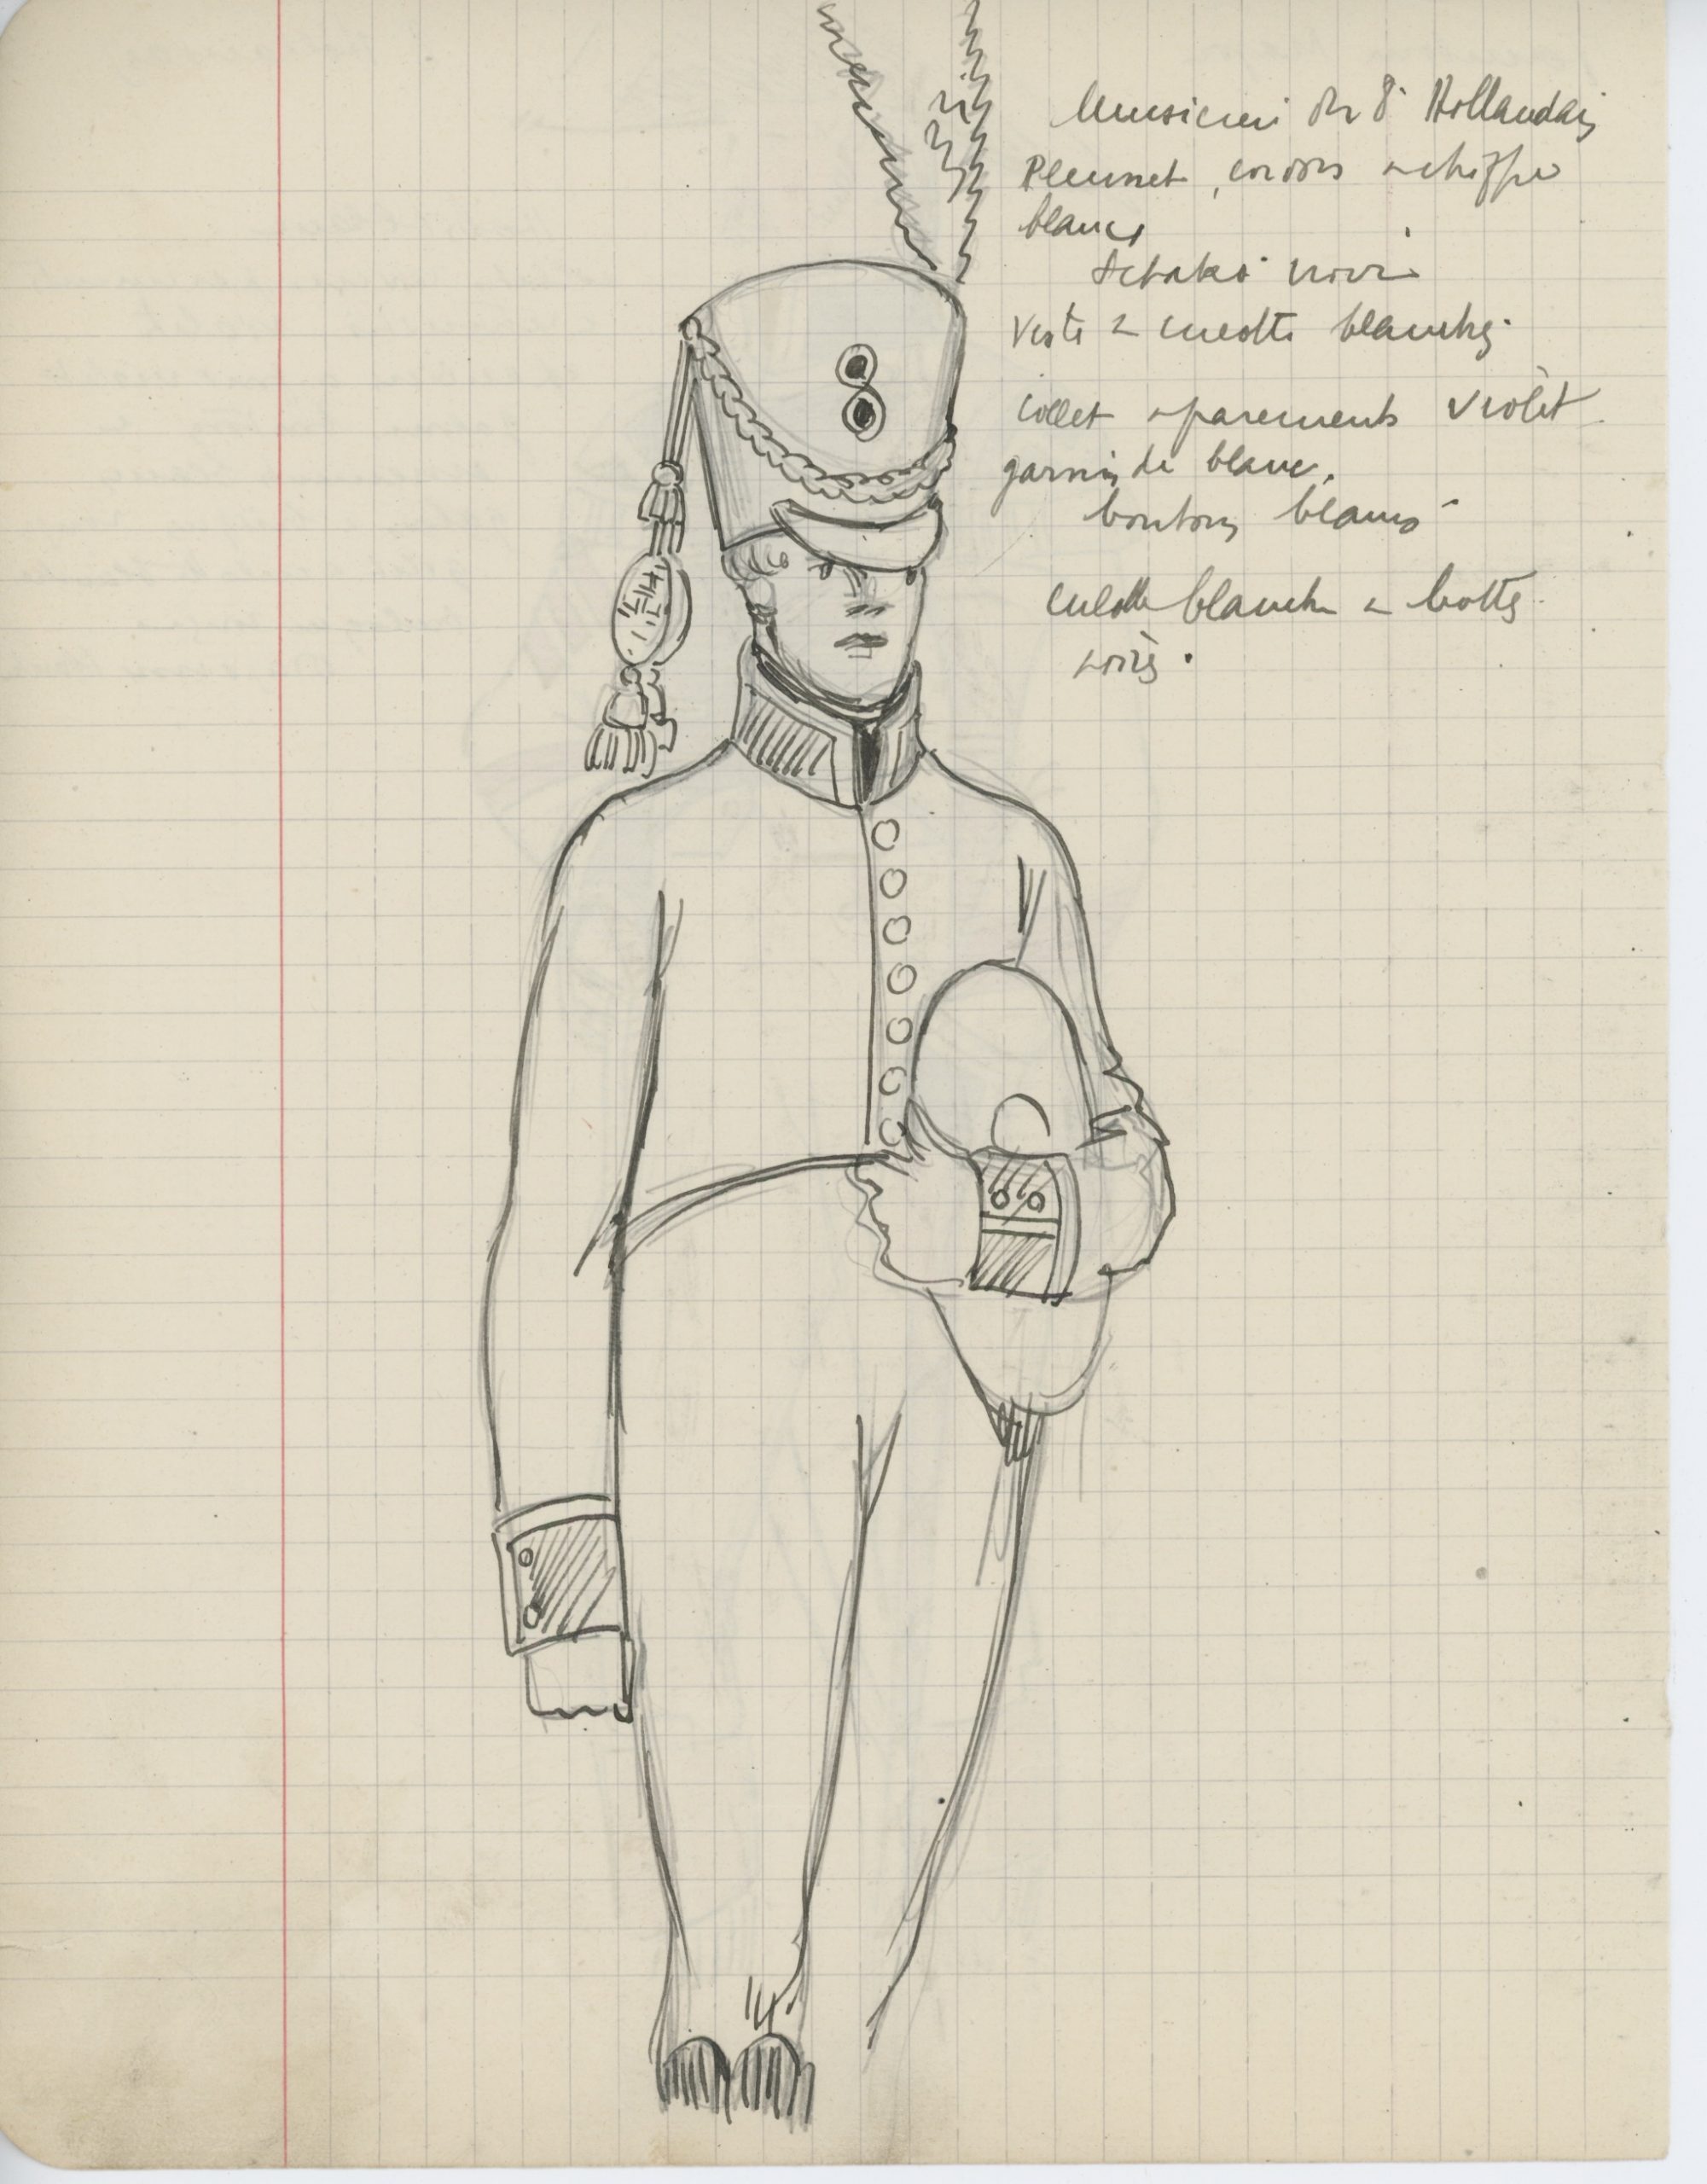 Musicien du 8e Hollandais
Plumet, cordons et chiffre
blancs
Schako noir
Veste et culotte blanches.
collet et parements violet
garnis de blanc.
boutons blancs
culotte blanche et bottes
noires.
8